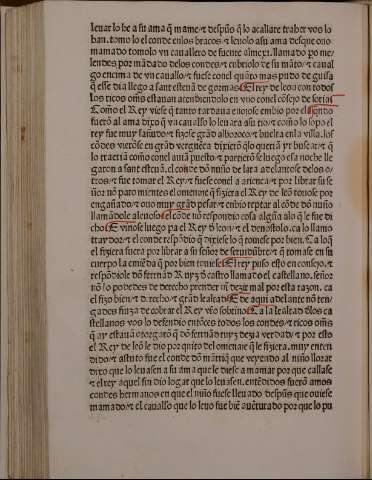 leuar lo he a su ama q̃ mame ⁊ despũs q̃ lo acallare traher vos lo
han. tomo lo el conde enlos braços ⁊ leuolo a su ama desque ouo
mamado tomolo vn cauallero de fuente almexi. llamado pero me
lendes por mãdado delos condes ⁊ cubriolo de su mãto ⁊ caual
go encima de vn cauallo ⁊ fuese conel quãto mas pudo de guisa
q̃ esse dia llego a sant esteuã de gormas. El rey de leon con todos
los ricos om̃s estauan atendiendolo en vno conel cõsejo de soria
Como el Rey viese q̃ tanto tardaua enojose embio por el
fuerõ al ama dixo q̃ vn cauallo lo leuara a su tio ⁊ como lo sopo el
rey fue muy sañudo ⁊ fizose grãd alboroço ⁊ buelta enla villa. los
cõdes viẽdose en grãd verguẽça dixierõ q̃ lo queriã yr buscar ⁊ q̃
lo traeriã como conel auiã puesto ⁊ partierõ se luego essa noche lle
garon a sant esteuã. el conde dõ nuño de lara adelantose delos o
tros ⁊ fue tomar el Rey ⁊ fuese conel a atiença ⁊ por librar su se
ñor nõ paro mientes el omenaje q̃ fiziera el Rey de leõ touose por
engañado ⁊ ouo muy grãd pesar ⁊ embio reptar al cõde dõ nuño
llamãdole aleuoso el cõde nõ respondio cosa algũa alo q̃ le fue di
cho E vinose luego pa el Rey dõ leon ⁊ el denostolo. ca lo llamo
traydor ⁊ el conde respõdio q̃ dixiese lo q̃ touiese por bien. Ca lo q̃
el fiziera fuera por librar a su señor de seruidũbre ⁊ q̃ tomase en su
cuerpo la emiẽda q̃ por bien touiese El rey puso esto en consejo. ⁊
respõdiole dõ fernãd Ruyz d̃ castro llamado el castellano. señor
nõ lo podedes de derecho prender ni dezir mal por esta razon. ca
el fizo bien ⁊ d̃recho ⁊ grãd lealtad E de aqui adelante nõ ten
gades fiuza de cobrar el Rey vr̃o sobrino Ca la lealtad dlos ca
stellanos vos lo defendio entõces todos los condes ⁊ ricos om̃s
q̃ ay estauã otorgarõ q̃ dõ fernãd ruyz dezia verdad ⁊ por esto
el Rey de leõ le dio por quito del omenaje q̃ le fiziera. muy enten
dido ⁊ astuto fue el conde dõ mãriq̃ que veyendo al niño llorar
dixo que lo leuasen a su ama que le diese a mamar por que callase
⁊ el rey aquel fin dio logar que lo leuasen. entẽdidos fuerõ amos
condes hermanos en que el niño fuese lleuado despũs que ouiese
mamado ⁊ el cauallo que lo leuo fue biẽ auẽturado por que lo pu